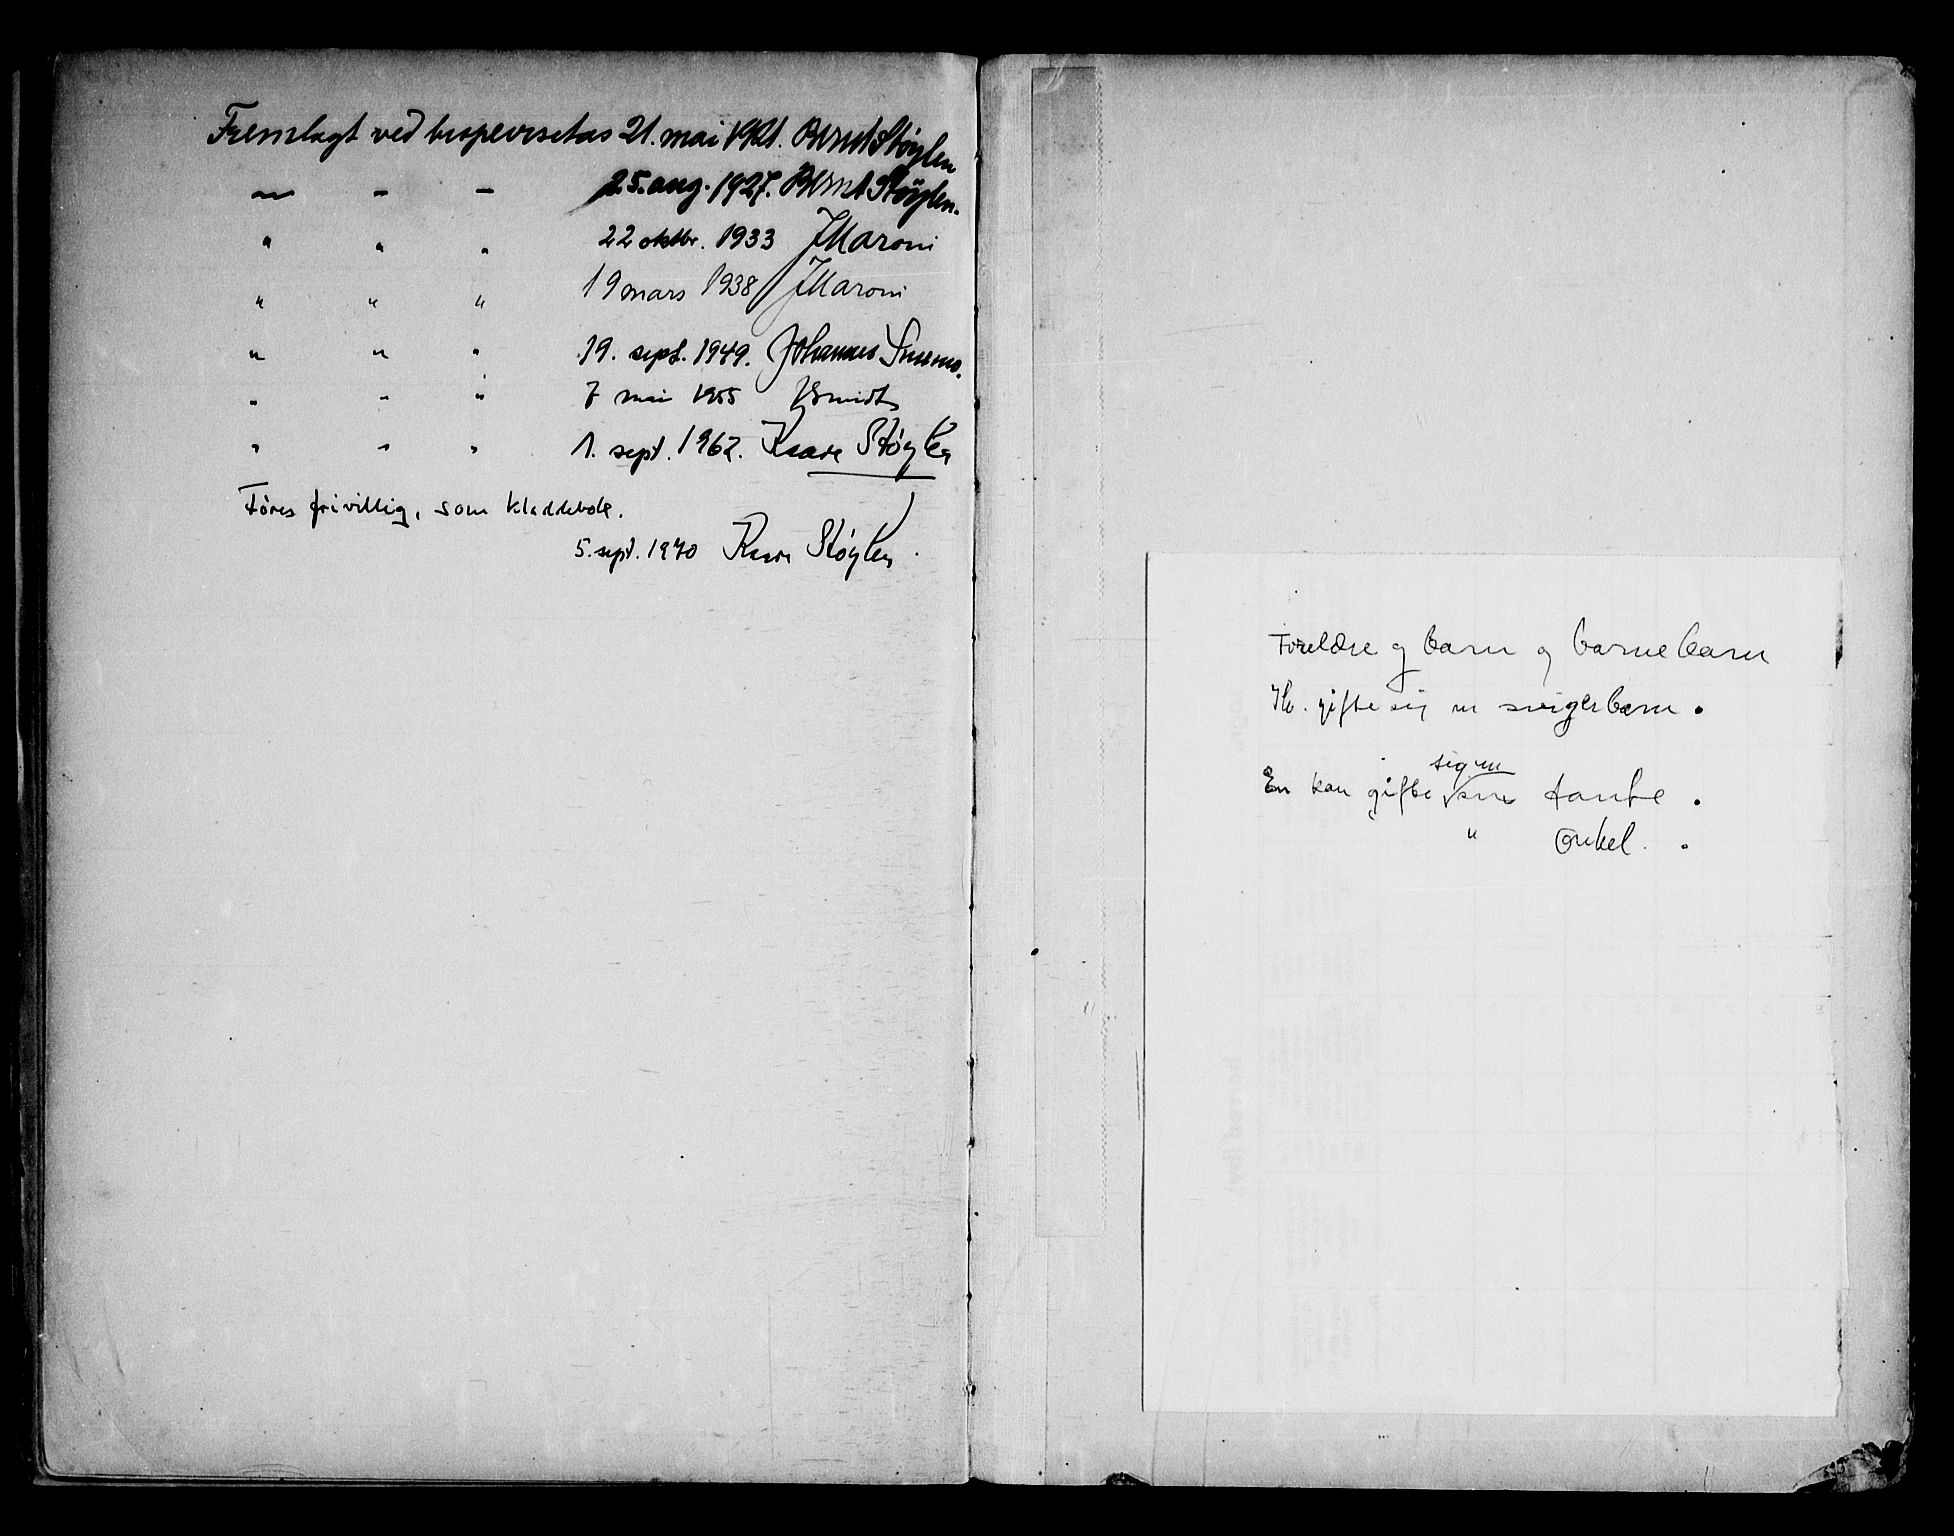 Fremlagt ved bispevisitas 21. mai 1921. Bernt Støylen
— - - 25. aug. 1927. Bernt Støylen.
" " " 22 oktbr. 1933 JMaroni
" " " 19 mars 1938 JMaroni
" " " 19. sept. 1949. Johannes Smemo.
" " " 7 mai 1955 JSmidt
" " " 1. sept. 1962. Kaare Støylen
Føres frivillig, som kladdebok.
5. sept. 1970 Kaare Støylen
Foreldre og barn og barnebarn
gifte sig m svigerbarn.
sig m
En kan gifte sin tante.
" onkel.